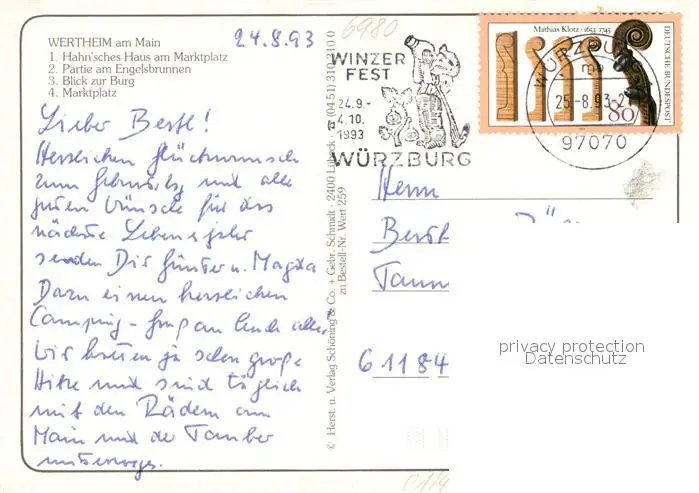 WERTHEIM am Main
1. Hahn'sches Haus am Marktplatz
2. Partie am Engelsbrunnen
3. Blick zur Burg
4. Marktplatz
24.8.93
6980
Lieber Bertl!
Herzlichen Glückwunsch
zum Geburtstag und alle
guten Wünsche für das
nächste Lebensjahr
senden Dir Günter u. Magda
Dazu einen herzlichen
Camping-Gruß an Euch alle.
Wir hatten ja schon große
Hitze und sind täglich
mit den Rädern am
Main und der Tauber
unterwegs.
© Herst. u. Verlag Schöning & Co. + Gebr. Schmidt · 2400 Lübeck · (04 51) 310 310 0
zu Bestell-Nr. Wert 259
WINZER
FEST
24.9.-
4.10.
1993
WÜRZBURG
Mathias Klotz · 1653-1743
DEUTSCHE BUNDESPOST
80
WÜRZBURG
mb
25.-8.93-2
97070
Herrn
61184
privacy protection
Datenschutz